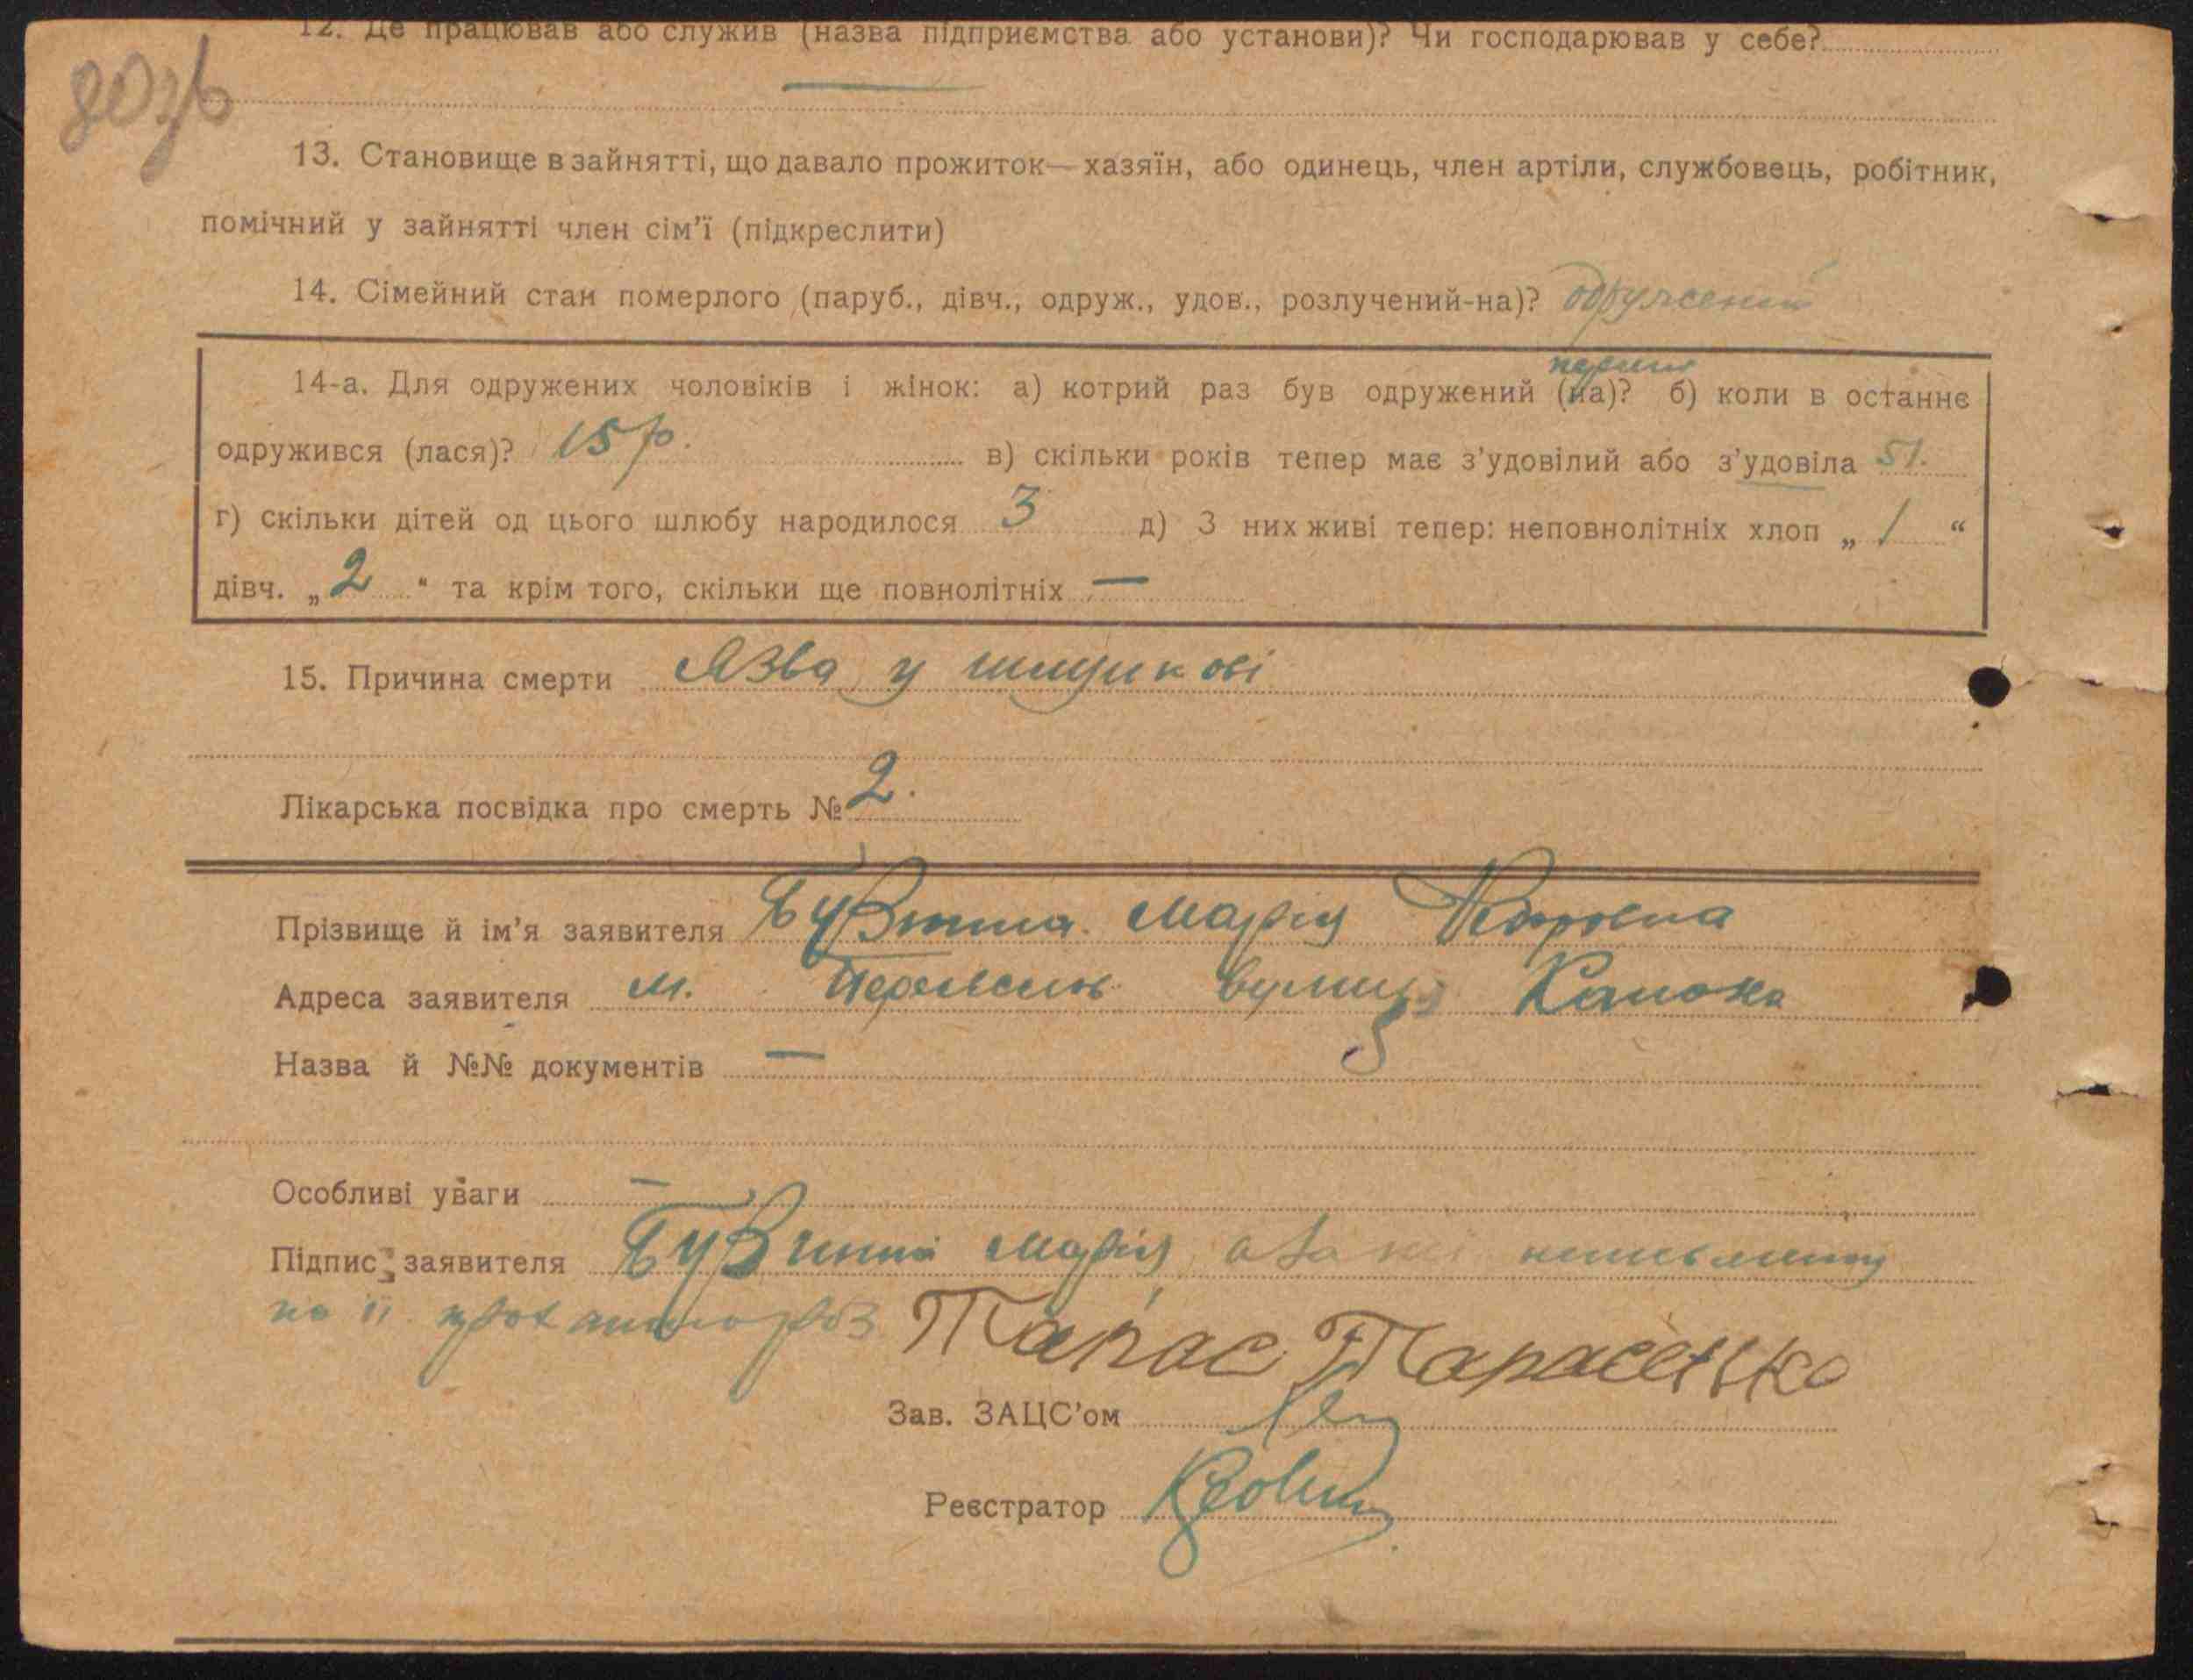 12. Де працював або служив (назва підприємства або установи)? Чи господарював у себе?
13. Становище в зайнятті, що давало прожиток— хазяїн, або одинець, член артіли, службовець, робітник,
помічний у зайнятті член сім'ї (підкреслити)
14. Сімейний стан померлого (паруб., дівч., одруж., удов., розлучений-на)? одружений
14-а. Для одружених чоловіків і жінок: а) котрий раз був одружений (на)? б) коли в останнє
одружився (лася)? 15 р. в) скільки років тепер має з'удовілий або з'удовіла 51.
г) скільки дітей од цього шлюбу народилося 3 д) З них живі тепер: неповнолітніх хлоп „ 1 “
дівч. „ 2 “ та крім того, скільки ще повнолітніх —
15. Причина смерти Язва у шлункові
Лікарська посвідка про смерть № 2.
Прізвище й ім'я заявителя Марія Петровна
Адреса заявителя м. вулиця
Назва й №№ документів —
Особливі уваги —
Підпис заявителя Марія
на її
Тарас Тарасенко
Зав. ЗАЦС'ом
Реєстратор